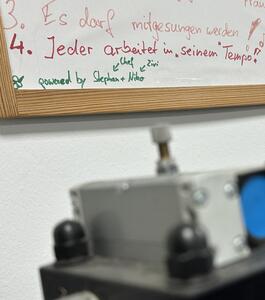 3. Es darf mitgesungen werden!
4. Jeder arbeitet in "seinem" Tempo!
Chef Zivi
powered by Stephan + Niko